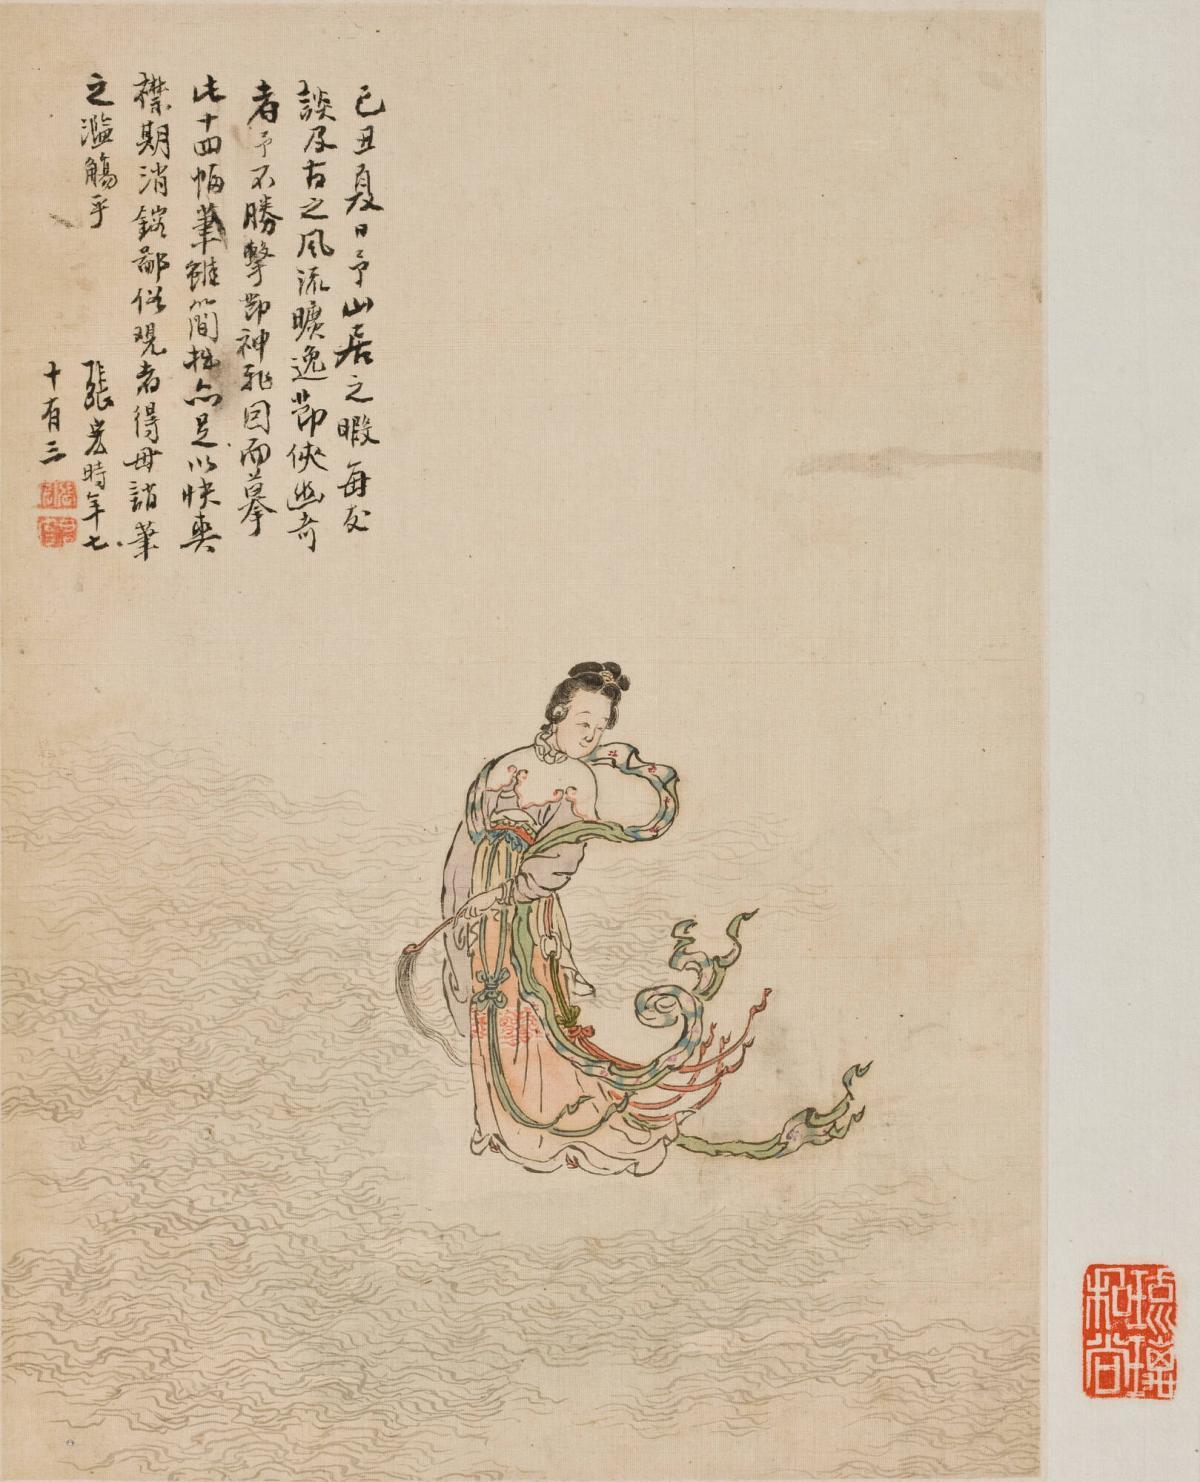 己丑夏日予山居之暇每友
談及古之風流曠逸節俠幽奇
者予不勝擊節神飛因而摹
此十四幅筆雖簡拙亦足以快爽
襟期消鎔鄙俗觀者得毋誚筆
之濫觴乎
張宏時年七
十有三